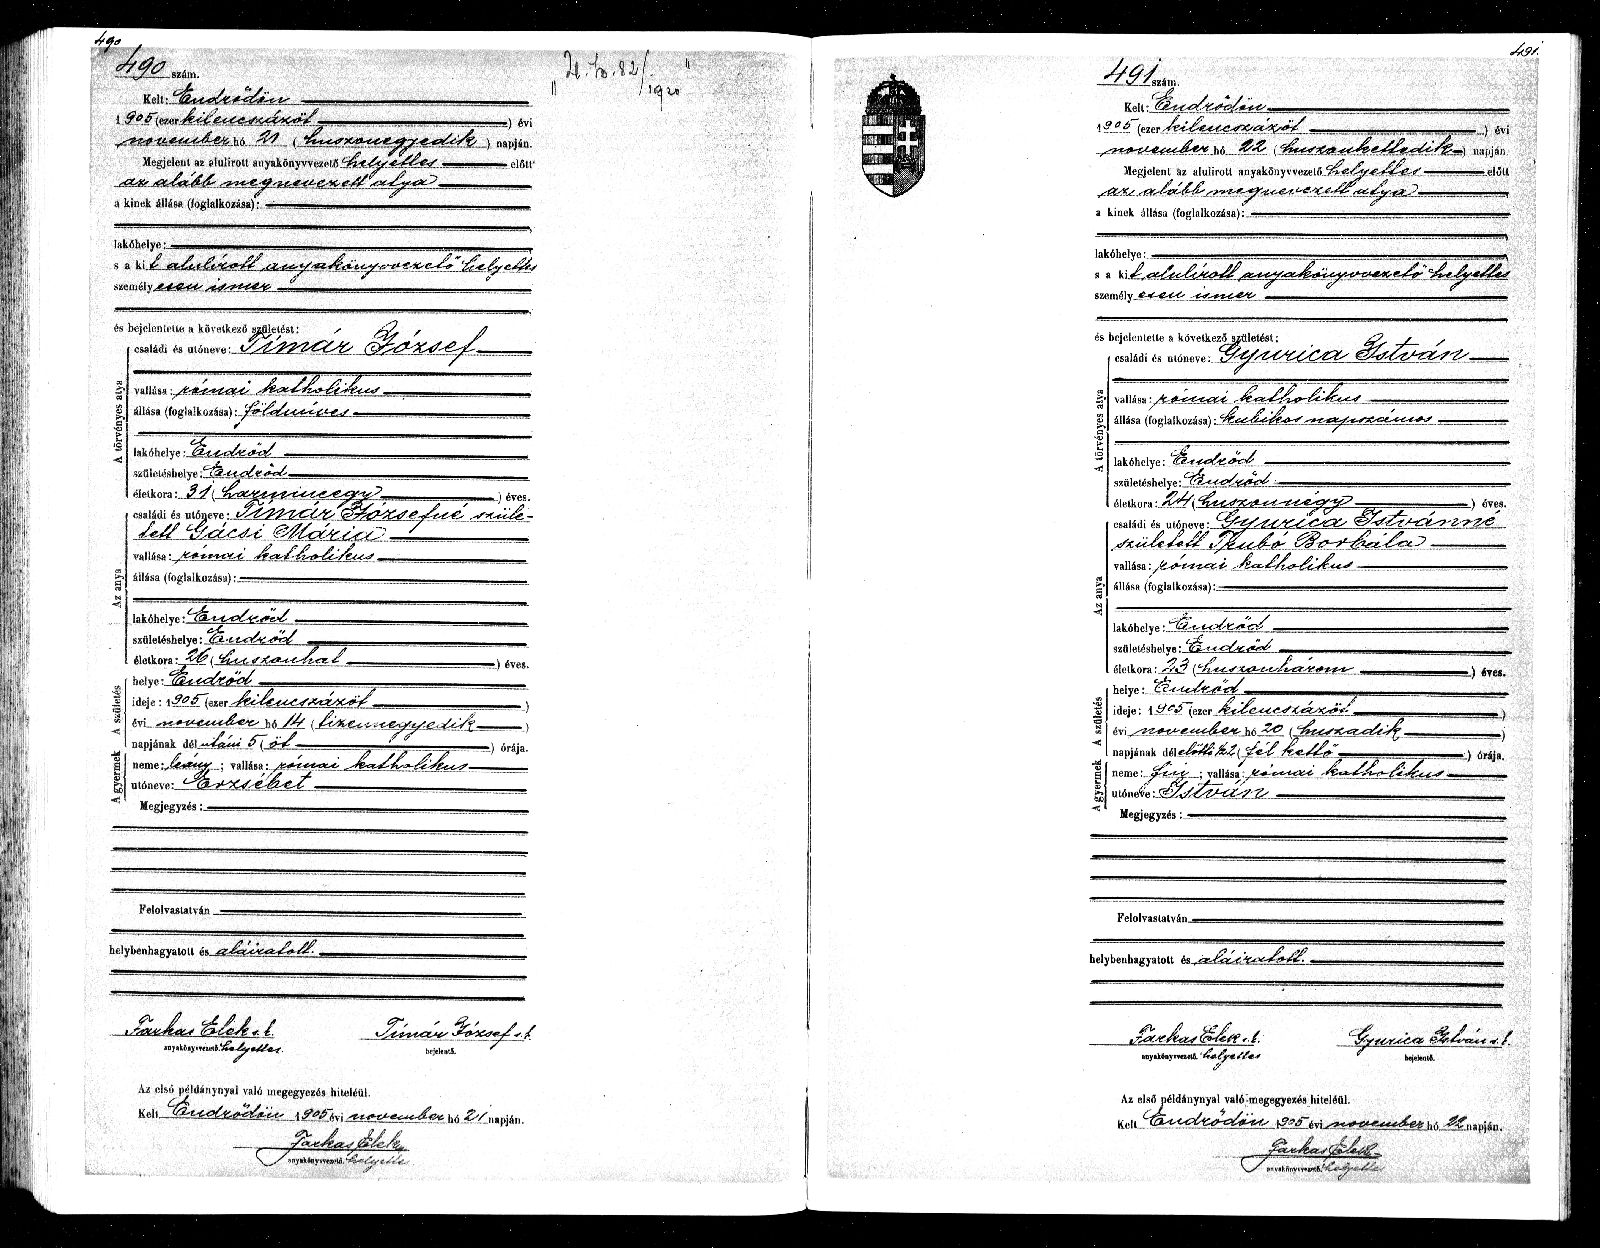 490
490 szám.
Kelt: Endrődön
1905 (ezer kilencszázöt ) évi
november hó 21 (huszonegyedik ) napján.
Megjelent az alulirott anyakönyvvezető helyettes előtt
az alább megnevezett atya
a kinek állása (foglalkozása):
lakóhelye:
s a kit alulírott anyakönyvvezető helyettes
személyesen ismer
és bejelentette a következő születést:
A törvényes atya
családi és utóneve: Tímár József
vallása: római katholikus
állása (foglalkozása): földmüves
lakóhelye: Endrőd
születéshelye: Endrőd
életkora: 31 (harmincegy ) éves.
Az anya
családi és utóneve: Tímár Józsefné szüle-
tett Gácsi Mária
vallása: római katholikus
állása (foglalkozása):
lakóhelye: Endrőd
születéshelye: Endrőd
életkora: 26 (huszonhat ) éves.
A születés
helye: Endrőd
ideje: 1905 (ezer kilencszázöt )
évi november hó 14 (tizennegyedik )
napjának délutáni 5 (öt ) órája.
A gyermek
neme: leány ; vallása: római katholikus
utóneve: Erzsébet
Megjegyzés:
Felolvastatván
helybenhagyatott és aláiratott.
Farkas Elek s.k. Tímár József s.k.
anyakönyvvezető helyettes. bejelentő.
Az első példánynyal való megegyezés hiteléül.
Kelt Endrődön 1905 évi november hó 21 napján.
Farkas Elek
anyakönyvvezető. helyettes
82/1920
491
491 szám.
Kelt: Endrődön
1905 (ezer kilencszázöt ) évi
november hó 22 (huszonkettedik ) napján
Megjelent az alulirott anyakönyvvezető helyettes előtt
az alább megnevezett atya
a kinek állása (foglalkozása):
lakóhelye:
s a kit alulírott anyakönyvvezető helyettes
személyesen ismer
és bejelentette a következő születést:
A törvényes atya
családi és utóneve: Gyurica István
vallása: római katholikus
állása (foglalkozása): kubikos napszámos
lakóhelye: Endrőd
születéshelye: Endrőd
életkora: 24 (huszonnégy ) éves.
Az anya
családi és utóneve: Gyurica Istvánné
született Trubó Borbála
vallása: római katholikus
állása (foglalkozása):
lakóhelye: Endrőd
születéshelye: Endrőd
életkora: 23 (huszonhárom ) éves.
A születés
helye: Endrőd
ideje: 1905 (ezer kilencszázöt )
évi november hó 20 (huszadik )
napjának délelőtti ½2 (fél kettő ) órája.
A gyermek
neme: fiu ; vallása: római katholikus
utóneve: István
Megjegyzés:
Felolvastatván
helybenhagyatott és aláiratott.
Farkas Elek s.k. Gyurica István s.k.
anyakönyvvezető. helyettes bejelentő.
Az első példánynyal való megegyezés hiteléül.
Kelt Endrődön 1905 évi november hó 22 napján.
Farkas Elek
anyakönyvvezető. helyettes